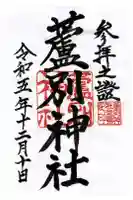 参拝之證
蘆別神社
令和五年十二月十日